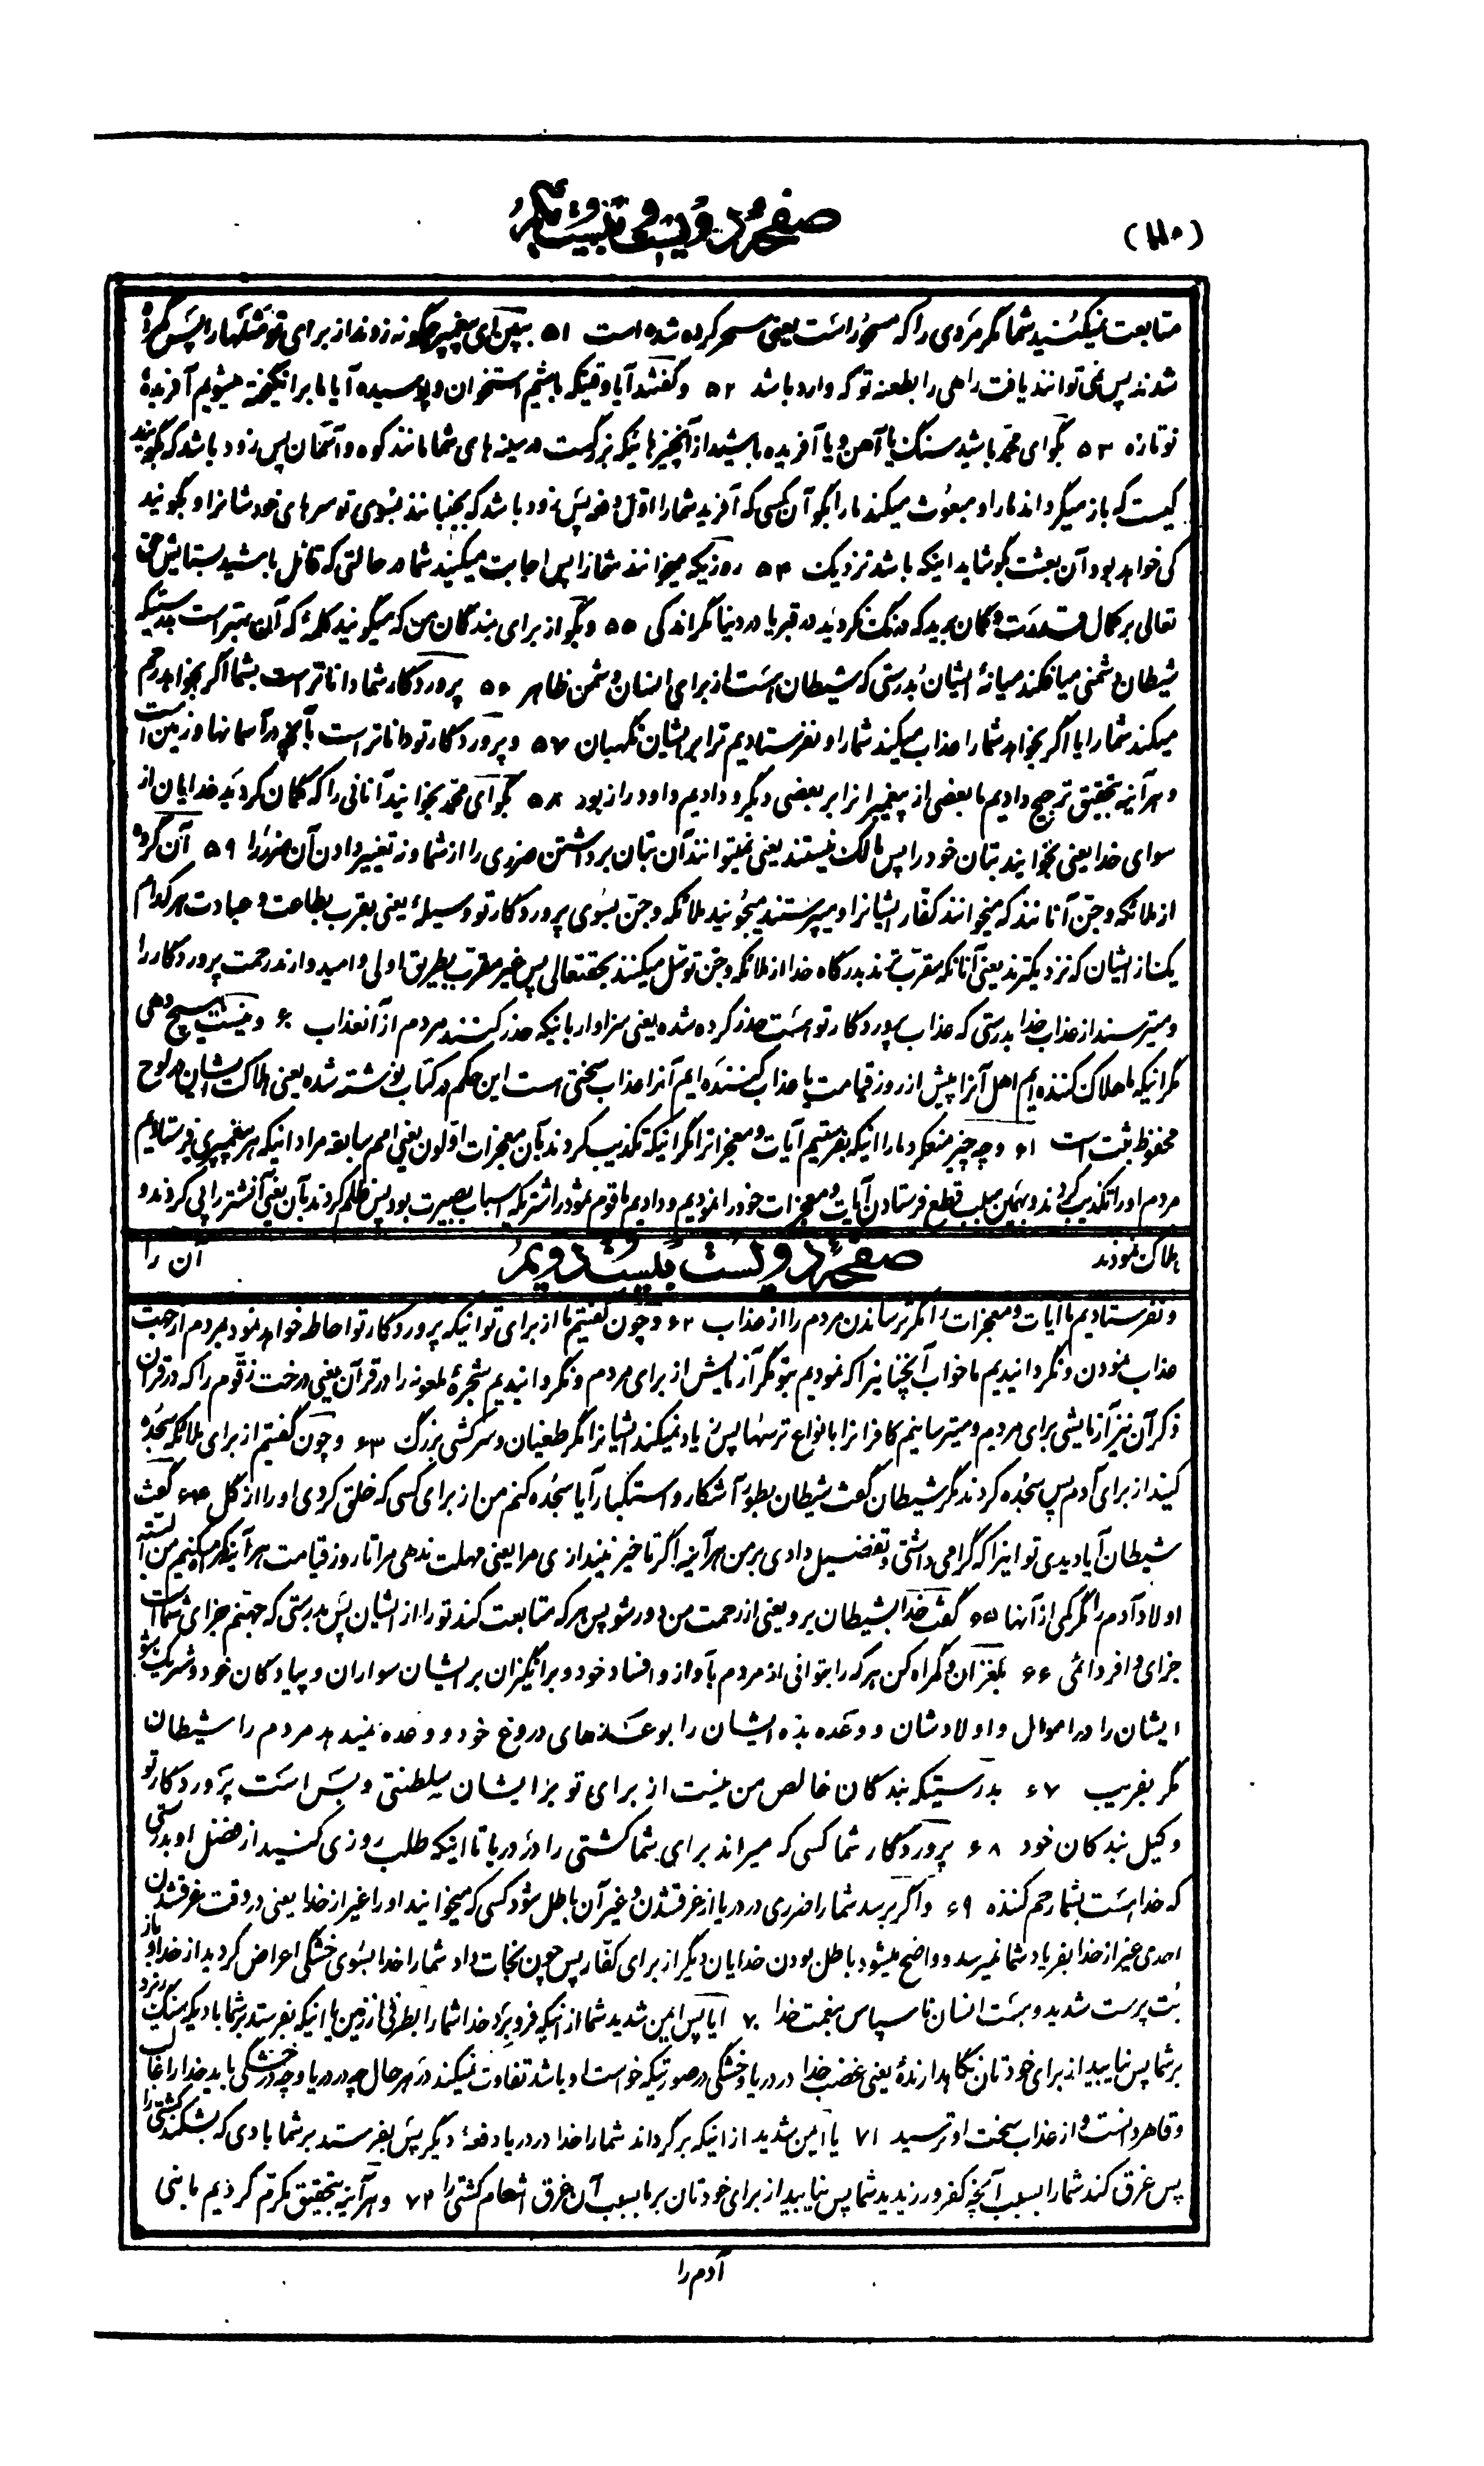 (۱۱۰)
صفحهٔ دویست و بیست و یکم
متابعت نمیکنید شما مگر مردی را که مسحور است یعنی سحر کرده شده است ۵۱ ببین ای پیغمبر چگونه زدند از برای تو مثلها را پس گمراه
شدند پس نمی توانند یافت راهی را بطعنه تو که وارد باشد ۵۲ و گفتند آیا وقتیکه باشیم استخوان و پوسیده آیا ما برانگیخته میشویم آفریدهٔ
نو تازه ۵۳ بگو ای محمد باشید سنگ یا آهن و یا آفریده باشید از آنچیزهائیکه بزرگست در سینه های شما مانند کوه و آسمان پس زود باشد که بگویند
کیست که باز میگرداند ما را و مبعوث میکند ما را بگو آن کسی که آفرید شما را اول دفعه پس زود باشد که بجنبانند بسوی تو سرهای خودشانرا و بگویند
کی خواهد بود آن بعثت بگو شاید اینکه باشد نزدیک ۵۴ روزیکه میخوانند شما را پس اجابت میکنید شما در حالتی که قائل باشید بستایش حق
تعالی بر کمال قدرت و گمان برید که درنگ نکردید در قبر یا در دنیا مگر اندکی ۵۵ و بگو از برای بندگان من که میگویند کلمهٔ که آن بهتر است بدرستیکه
شیطان دشمنی میافکند میانهٔ ایشان بدرستی که شیطان است از برای انسان دشمن ظاهر ۵۶ پروردگار شما داناتر است بشما اگر بخواهد رحم
میکند شما را یا اگر بخواهد شما را عذاب میکند شما را و نفرستادیم ترا بر ایشان نگهبان ۵۷ و پروردگار تو داناتر است بآنچه در آسمانها و زمین است
و هر آینه بتحقیق ترجیح دادیم ما بعضی از پیغمبرانرا بر بعضی دیگر و دادیم داود را زبور ۵۸ بگو ای محمد بخوانید آنانی را که گمان کردید خدایان از
سوای خدا یعنی بخوانید بتان خود را پس مالک نیستند یعنی نمیتوانند آن بتان برداشتن ضرری را از شما و نه تغییر دادن آن ضرر را ۵۹ آن گروه
از ملائکه و جن آنانند که میخوانند کفار ایشانرا و میپرستند میجویند ملائکه و جن بسوی پروردگار تو وسیلهٔ یعنی بقرب بطاعت و عبادت هر کدام
یک از ایشان که نزدیکترند یعنی آنانکه مقرب ترند بدرگاه خدا از ملائکه و جن توسل میکنند بحقتعالی پس غیر مقرب بطریق اولی و امیدوارند رحمت پروردگار را
و میترسند از عذاب خدا بدرستی که عذاب پروردگار تو است حذر کرده شده یعنی سزاوار بانیکه حذر کنند مردم از آنعذاب ۶۰ و نیست هیچ دهی
مگر انیکه ما هلاک کننده ایم اهل آنرا پیش از روز قیامت یا عذاب کننده ایم آنرا عذاب سختی است این حکم در کتاب نوشته شده یعنی هلاکت ایشان در لوح
محفوظ ثبت است ۶۱ و چه چیز منع کرد ما را انیکه بفرستیم آیات و معجزاترا مگر انیکه تکذیب کردند بآن معجزات اولون یعنی امم سابقه مراد انیکه هر پیغمبری فرستادیم
مردم او را تکذیب کردند و بهمین سبب قطع فرستادن آیات و معجزات خود را نمودیم و دادیم ما قوم ثمود را شتر که اسباب بصیرت بود پس ظلم کردند بآن یعنی آنشتر را پی کردند و
هلاک نمودند
آن را
صفحهٔ دویست بیست دویم
و نفرستادیم ما آیات و معجزات را مگر ترساندن مردم را از عذاب ۶۲ و چون گفتیم ما از برای تو انیکه پروردگار تو احاطه خواهد نمود بمردم از جهت
عذاب نمودن و نگردانیدیم ما خواب آنچنانیرا که نمودیم بتو مگر آزمایش از برای مردم و نگردانیدیم شجرهٔ ملعونه را در قرآن یعنی درخت زقوم را که در قرآن
ذکر آن نیز آزمایشی برای مردم و میترسانیم کافرانرا بانواع ترسها پس زیاد نمیکند ایشانرا مگر طغیان و سرکشی بزرگ ۶۳ و چون گفتیم از برای ملائکه سجده
کنید از برای آدم پس سجده کردند مگر شیطان گفت شیطان بطور آشکار و استکبار آیا سجده کنم من از برای کسی که خلق کردی او را از گل ۶۴ گفت
شیطان آیا دیدی تو اینرا که گرامی داشتی و تفضیل دادی بر من هر آینه اگر تأخیر بیندازی مرا یعنی مهلت بدهی مرا تا روز قیامت هر آینه گمراه میکنیم من البته
اولاد آدم را مگر کمی از آنها ۶۵ گفت خدا بشیطان برو یعنی از رحمت من دور شو پس هر که متابعت کند تو را از ایشان پس بدرستی که جهنم جزای شما است
جزای وافر دائمی ۶۶ بلغزان و گمراه کن هر که را بتوانی از مردم بآواز و افساد خود و برانگیزان بر ایشان سواران و پیادگان خود و شریک شو
ایشان را در اموال و اولادشان و وعده بده ایشان را بوعده های دروغ خود و وعده نمیدهد مردم را شیطان
مگر بفریب ۶۷ بدرستیکه بندگان خالص من نیست از برای تو بر ایشان سلطنتی و بس است پروردگار تو
وکیل بندگان خود ۶۸ پروردگار شما کسی که میراند برای شما کشتی را در دریا تا اینکه طلب روزی کنید از فضل او بدرستی
که خداست بشما رحم کننده ۶۹ و اگر برسد شما را ضرری در دریا از غرقشدن و غیر آن باطل شود کسی که میخوانید او را غیر از خدا یعنی در وقت غرقشدن
احدی غیر از خدا بفریاد شما نمیرسد و واضح میشود باطل بودن خدایان دیگر از برای کفار پس چون نجات داد شما را خدا بسوی خشکی اعراض کردید از خدا و باز
بت پرست شدید و هست انسان ناسپاس بنعمت خدا ۷۰ آیا پس ایمن شدید شما از انیکه فرو برد خدا شما را بطرفی از زمین یا انیکه بفرستد بر شما بادیکه سنگ ریزد
بر شما پس نیابید از برای خودتان نگاهدارندهٔ یعنی غضب خدا در دریا و خشکی در صورتیکه خواست او باشد تفاوت نمیکند در هر حال چه در دریا و چه در خشکی باید خدا را غالب
و قاهر دانست و از عذاب سخت او ترسید ۷۱ یا ایمن شدید از انیکه برگرداند شما را خدا در دریا دفعهٔ دیگر پس بفرستد بر شما بادی که بشکند کشتی را
پس غرق کند شما را بسبب آنچه کفر ورزیدید شما پس نیابید از برای خودتان بر ما بسبب آن غرق انتقام کشتی را ۷۲ و هر آینه بتحقیق مکرم کردیم ما بنی
آدم را